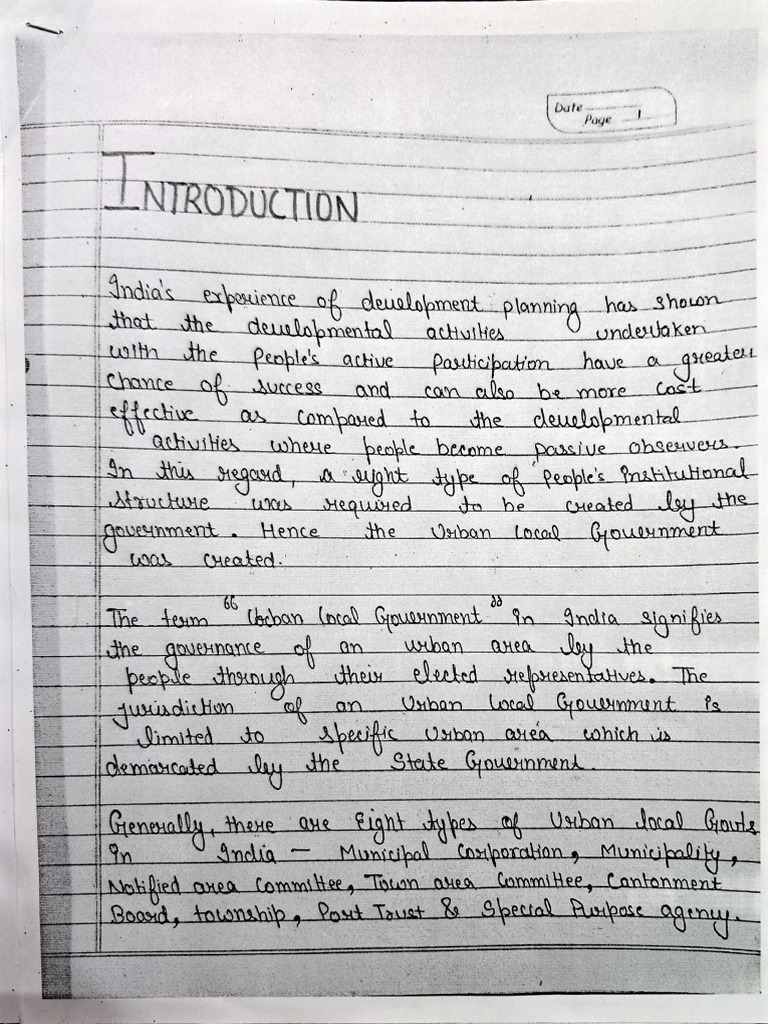 Date
Page 1
INTRODUCTION
India's experience of development planning has shown
that the developmental activities undertaken
with the People's active participation have a greater
chance of success and can also be more cost
effective as compared to the developmental
activities where people become passive observers.
In this regard, a right type of People's Institutional
structure was required to be created by the
government. Hence the Urban Local Government
was created.
The term "Urban Local Government" in India signifies
the governance of an urban area by the
people through their elected representatives. The
jurisdiction of an Urban Local Government is
limited to specific Urban area which is
demarcated by the State Government.
Generally, there are Eight types of Urban local Govts
in India – Municipal Corporation, Municipality,
Notified area Committee, Town area Committee, Cantonment
Board, township, Port Trust & Special Purpose agency.